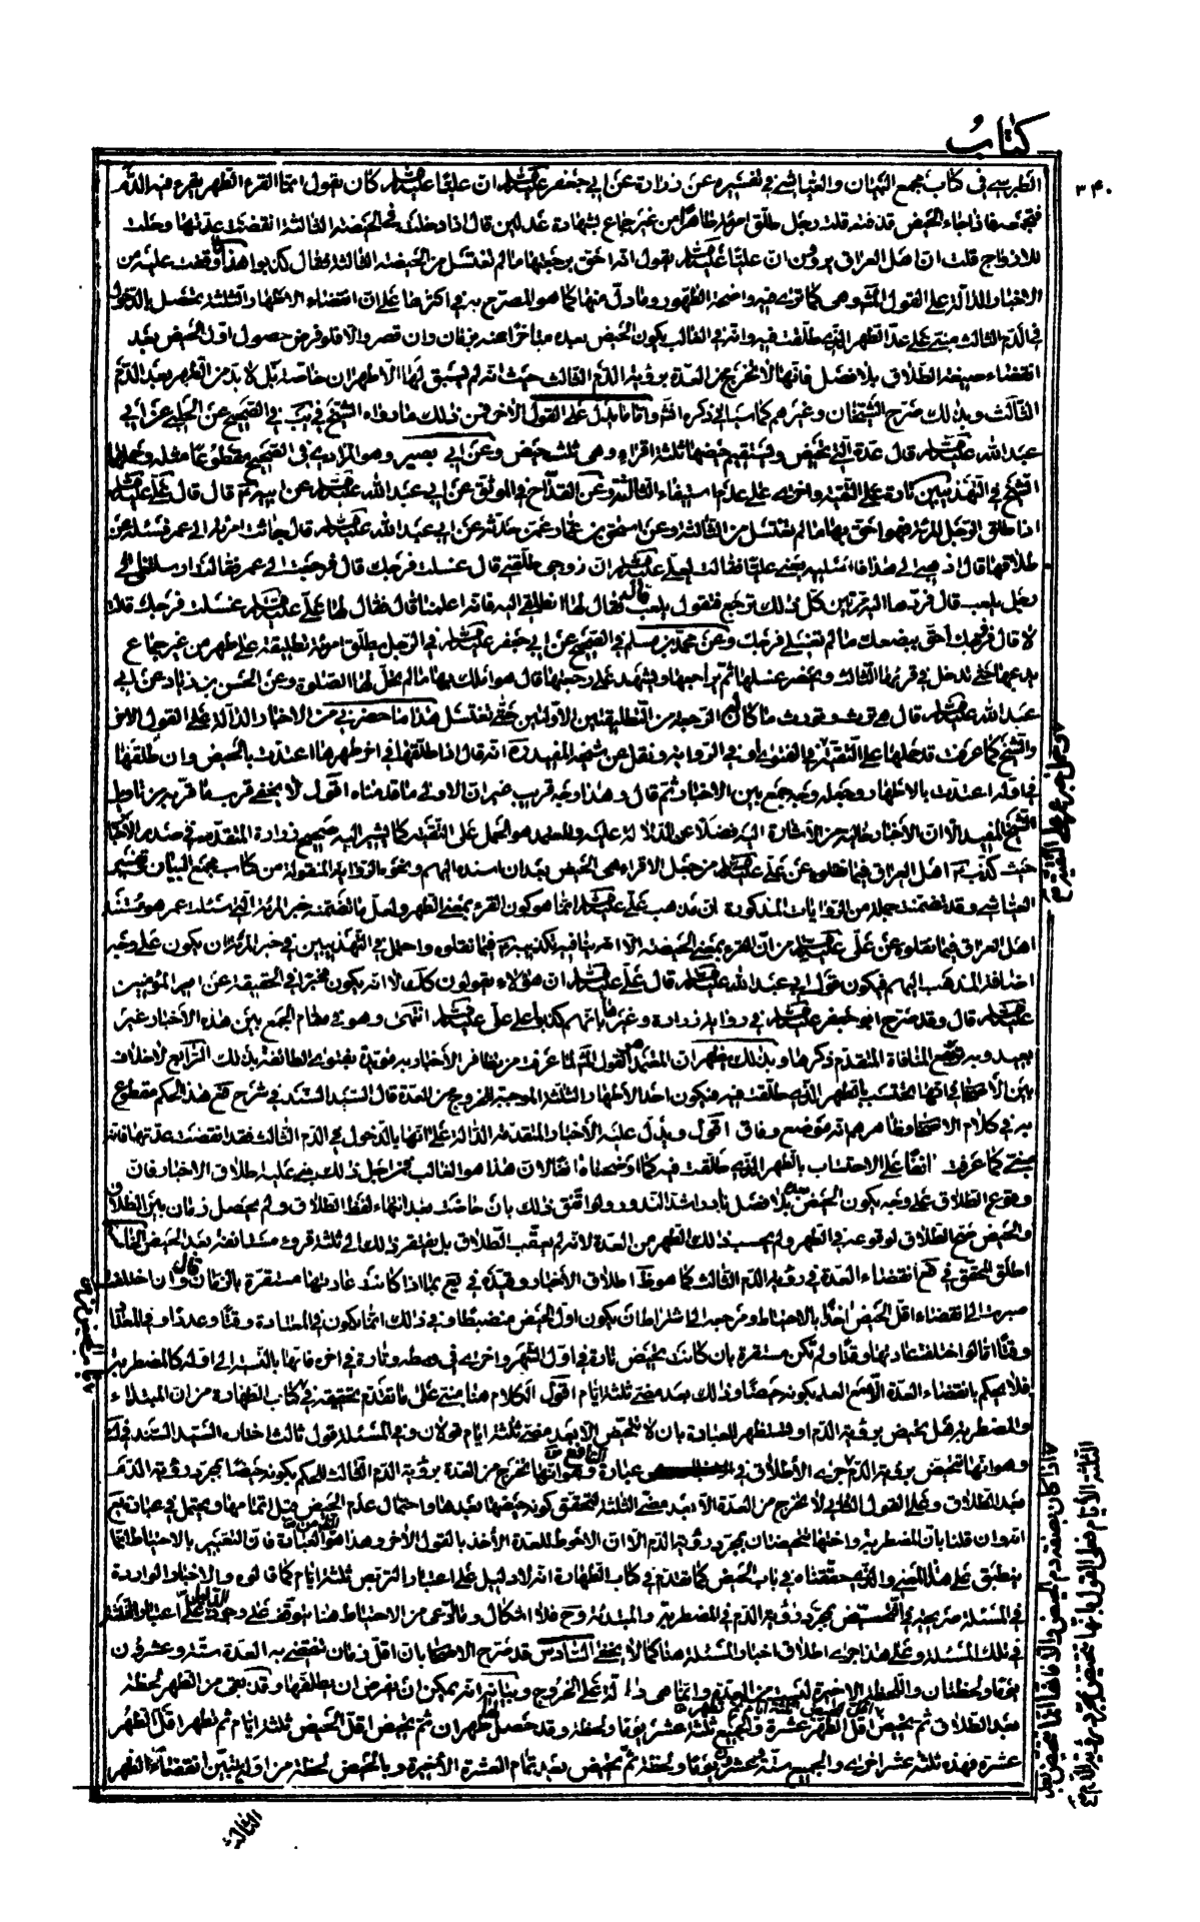 كتاب
٣٤٠
الطبرسي في كتاب مجمع البيان والعياشي في تفسيره عن زرارة عن ابي جعفر عليه السلام ان عليا عليه السلام كان يقول انما القرء الطهر يقرء فيه الدم
فتجمعه فاذا جاء الحيض قذفته قلت رجل طلق امرأته طاهرا من غير جماع بشهادة عدلين قال اذا دخلت في الحيضة الثالثة انقضت عدتها وحلت
للازواج قلت ان اهل العراق يروون ان عليا عليه السلام يقول انه احق برجعتها ما لم تغتسل من الحيضة الثالثة فقال كذبوا هذا ما وقفت عليه من
الاخبار الدالة على القول المشهور وهي كما ترى فيه واضحة الظهور وما دل منها كما هو المصرح به في اكثرها على ان انقضاء الاطهار الثلثة يحصل بالدخول
في الدم الثالث مبني على عد الطهر الذي طلقت فيه وانه في الغالب يكون الحيض بعده متأخرا عنه بزمان وان قصر والا فلو فرض حصول اول الحيض بعد
انقضاء صيغة الطلاق بلا فصل فانها لا تخرج من العدة برؤية الدم الثالث حيث انه لم يسبق لها الا طهران خاصة بل لا بد من الطهر بعد الدم
الثالث وبذلك صرح الشيخان وغيرهم كما سيأتي ذكره انشاء واما ما يدل على القول الاخر فمن ذلك ما رواه الشيخ في يب في الصحيح عن الحلبي عن ابي
عبد الله عليه السلام قال عدة التي تحيض ويستقيم حيضها ثلثة اقراء وهي ثلث حيض وعن ابي بصير وهو المرادي في الصحيح مقطوعا مثله وحملهما
الشيخ في التهذيبين تارة على التقية واخرى على عدم استيفاء الثالثة وعن القداح في الموثق عن ابي عبد الله عليه السلام عن ابيه قال قال علي عليه السلام
اذا طلق الرجل المرأة فهو احق بها ما لم تغتسل من الثالثة وعن اسحق بن عمار عمن حدثه عن ابي عبد الله عليه السلام قال جائت امرأة الى عمر فسئلته عن
طلاقها قال اذهبي الى هذا فاسئليه يعني عليا فقالت لعلي عليه السلام ان زوجي طلقني قال غسلت فرجك قال فرجعت الى عمر فقالت ارسلتني الى
رجل يلعب قال فردها اليه مرتين كل ذلك ترجع فتقول يلعب قال فقال لها انطلقي اليه فانه اعلمنا قال فقال لها علي عليه السلام غسلت فرجك قالت
لا قال فزوجك احق ببضعك ما لم تغسلي فرجك وعن محمد بن مسلم في الصحيح عن ابي جعفر عليه السلام في الرجل يطلق امرأته تطليقة على طهر من غير جماع
يدعها حتى تدخل في قرئها الثالث ويحضر غسلها ثم يراجعها ويشهد على رجعتها قال هو املك بها ما لم تحل لها الصلوة وعن الحسن بن زياد عن ابي
عبد الله عليه السلام قال هي ترث وتورث ما كان له الرجعة من التطليقتين الاولتين حتى تغتسل هذا ما حضرني من الاخبار الدالة على القول الاخر
والشيخ كما عرفت قد حملها على التقية في الفتوى او في الرواية ونقل عن شيخه المفيد ره انه قال اذا طلقها في اخر طهرها اعتدت بالحيض وان طلقها
في اوله اعتدت بالاطهار وجعله وجه جمع بين الاخبار ثم قال وهذا وجه قريب غير ان الاولى ما قدمناه اقول لا يخفى قرب ما قربه من تاويل
الشيخ المفيد الا ان الأخبار خالية من الاشارة اليه فضلا عن الدلالة عليه والمعتمد هو الحمل على التقية كما يشير اليه صحيح زرارة المتقدمة في صدر الأخبار
حيث كذب ع اهل العراق فيما نقلوه عن علي عليه السلام من جعل الاقراء هي الحيض بعد ان اسنده اليهم ونحوه الرواية المنقولة من كتاب مجمع البيان وتفسير
العياشي وقد تضمنت جملة من الروايات المذكورة ان مذهب علي عليه السلام انما هو كون القرء بمعنى الطهر ولعل ما تضمنه خبر المرأة التي سئلت عمر هو مستند
اهل العراق فيما نقلوه عن علي عليه السلام من ان القرء بمعنى الحيضة الا انه ينافيه تكذيبه ع فيما نقلوه واحتمل في التهذيبين في خبر المرأة ان يكون على وجه
اضافة المذهب اليهم فيكون قول ابي عبد الله عليه السلام قال علي عليه السلام ان هؤلاء يقولون كذلك لا انه يكون مخبرا في الحقيقة عن امير المؤمنين
عليه السلام قال وقد صرح ابو جعفر عليه السلام في رواية زرارة وغيرها بأنهم كذبوا على علي عليه السلام انتهى وهو في مقام الجمع بين هذه الأخبار غير
بعيد وبه يرتفع المنافاة المتقدم ذكرها وبذلك يظهر ان المعتمد هو القول المشهور لما عرفت من تظافر الأخبار به مؤيدة بفتوى الطائفة بذلك الرابع لا خلاف
بين الأصحاب في انها تحتسب بالطهر الذي طلقت فيه فيكون احد الأطهار الثلثة الموجبة للخروج من العدة قال السيد السند في شرح فع هذا الحكم مقطوع
به في كلام الاصحاب وظاهرهم انه موضع وفاق اقول ويدل عليه الأخبار المتقدمة الدالة على انها بالدخول في الدم الثالث فقد انقضت عدتها فانه
مبني كما عرفت انفا على الاحتساب بالطهر الذي طلقت فيه كما اوضحناه انفا لان هذا هو الغالب فمن اجل ذلك بني عليه اطلاق الاخبار فان
وقوع الطلاق على وجه يكون الحيض بعده بلا فصل نادر اشد الندور ولو اتفق ذلك بان حاضت بعد انتهاء لفظ الطلاق ولم يحصل زمان بين الطلاق
والحيض صح الطلاق لوقوعه في الطهر ولم يحسب ذلك الطهر من العدة لانه لم يعقب الطلاق بل يفتقر ذلك الى ثلثة قروء مستأنفة بعد الحيض الخامس
اطلق المحقق في فع انقضاء العدة في رؤية الدم الثالث كما هو ظ اطلاق الأخبار وقيده في يع بما اذا كانت عادتها مستقرة بالزمان قال وان اختلفت
صبرت الى انقضاء اقل الحيض اخذا بالاحتياط ومرجعه الى اشتراط ان يكون اول الحيض منضبطا وذلك انما يكون في المعتادة وقتا وعددا وفي المعتادة
وقتا اما لو اختلفت عادتها وقتا ولم تكن مستقرة بان كانت تحيض تارة في اول الشهر واخرى في وسطه وتارة في اخره فانها بالنسبة الى اوله كالمضطربة
فلا يحكم بانقضاء العدة الا مع العلم بكونه حيضا وذلك بعد مضي ثلثة ايام اقول الكلام هنا مبني على ما تقدم تحقيقه في كتاب الطهارة من ان المبتدئة
والمضطربة هل تحيض برؤية الدم او تستظهر للعبادة بان لا تتحيض الا بعد مضي ثلثة ايام قولان وفي المسئلة قول ثالث اختاره السيد السند في ك
وهو انها تتحيض برؤية الدم جرى الأطلاق في عبارة النافع وهو انها تخرج من العدة برؤية الدم الثالث للحكم بكونه حيضا بمجرد رؤية الدم
بعد الطلاق وعلى القول الثاني لا تخرج من العدة الا بعد مضي الثلثة لتحقق كونه حيضها بعدها واحتمال عدم الحيض قبل اتمامها ويحتمل في عبارة يع
انه وان قلنا بان المضطربة واختها تتحيضان بمجرد رؤية الدم الا ان الاحوط للعدة الأخذ بالقول الأخر وهذا هو الظاهر من العبارة فان التعبير بالاحتياط انما
ينطبق على هذا المعنى والذي حققناه في باب الحيض كما تقدم في كتاب الطهارة انه لا دليل على اعتبار التربص ثلثة ايام كما قالوه والاخبار الواردة
في المسئلة صريحة في التحيض بمجرد رؤية الدم في المضطربة والمبتدئة وح فلا اشكال وما ادعى من الاحتياط هنا يتوقف على وجود الدليل على اعتبار الثلثة
في تلك المسئلة وعلى هذا جرى اطلاق اخبار المسئلة هنا كما لا يخفى السادس قد صرح الاصحاب بان اقل زمان تنقضي به العدة ستة وعشرون
يوما ولحظتان واللحظة الاخيرة ليست من العدة وانما هي دالة على الخروج وبيانه انه يمكن ان يفرض ان يطلقها وقد بقي من الطهر لحظة
بعد الطلاق ثم تحيض اقل الحيض ثلثة ايام ثم تطهر اقل الطهر عشرة والجميع ثلثة عشر يوما ولحظة وقد حصل لها طهران ثم تحيض اقل الحيض ثلثة ايام ثم تطهر اقل الطهر
عشرة فهذه ثلثة عشر اخرى والجميع ستة وعشرون يوما ولحظة ثم تحيض بعد تمام العشرة الأخيرة وبالحيض لحظة من اوله يتبين انقضاء الطهر
الثالث